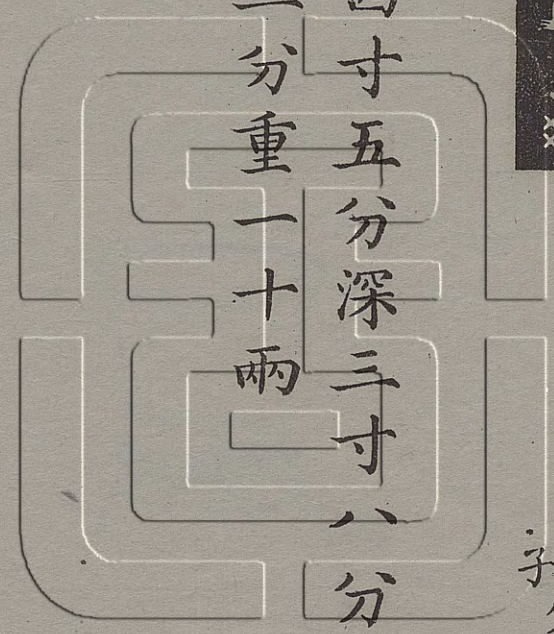 寸五分深三寸八分
一分重一十兩
子